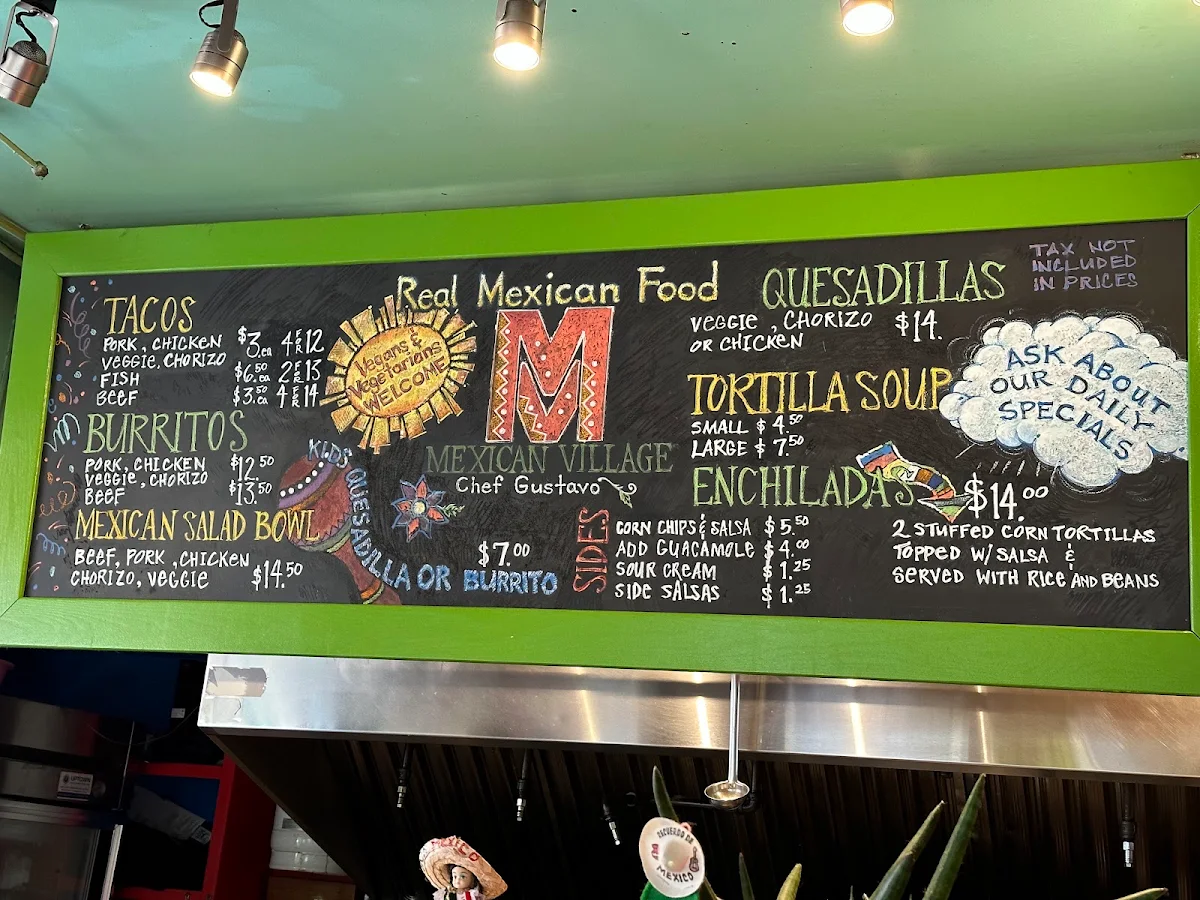 TACOS
PORK, CHICKEN
VEGGIE, CHORIZO
$3.ea 4 FOR 12
FISH
$6.50 ea 2 FOR 13
BEEF
$3.50 ea 4 FOR 14
BURRITOS
PORK, CHICKEN
VEGGIE, CHORIZO
$12.50
BEEF
$13.50
MEXICAN SALAD BOWL
BEEF, PORK, CHICKEN
CHORIZO, VEGGIE $14.50
Real Mexican Food
Vegans &
Vegetarians
WELCOME
M
MEXICAN VILLAGE
Chef Gustavo
KIDS QUESADILLA OR BURRITO
$7.00
SIDES
CORN CHIPS & SALSA $5.50
ADD GUACAMOLE $4.00
SOUR CREAM $1.25
SIDE SALSAS $1.25
QUESADILLAS
VEGGIE, CHORIZO
OR CHICKEN
$14.
TORTILLA SOUP
SMALL $4.50
LARGE $7.50
ENCHILADAS $14.00
2 STUFFED CORN TORTILLAS
TOPPED W/ SALSA &
SERVED WITH RICE AND BEANS
TAX NOT
INCLUDED
IN PRICES
ASK ABOUT
OUR DAILY
SPECIALS
MEXICO
RECUERDO DE
MEXICO